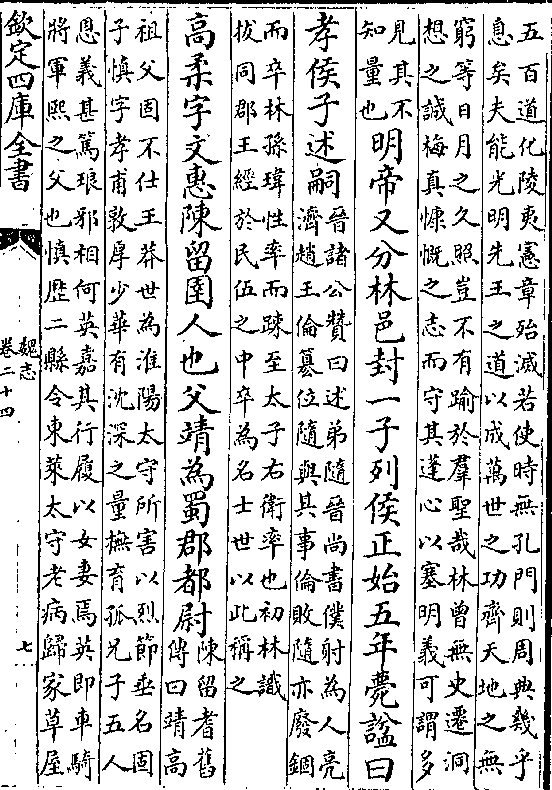 五百道化陵夷憲章殆滅若使時無孔門則周典幾乎
息矣夫能光明先王之道以成萬世之功齊天地之無
窮等日月之久照豈不有踰於羣聖哉林曾無史遷洞
想之誠梅真慷慨之志而守其蓬心以塞明義可謂多
見其不
知量也
明帝又分林邑封一子列侯正始五年薨諡曰
孝侯子述嗣
晉諸公贊曰述弟隨晉尚書僕射為人亮
濟趙王倫纂位隨與其事倫敗隨亦廢錮
而卒林孫瑋性率而踈至太子右衛率也初林識
拔同郡王經於民伍之中卒為名士世以此稱之
高柔字文惠陳留圉人也父靖為蜀郡都尉
陳留耆舊
傳曰靖高
祖父固不仕王莽世為淮陽太守所害以烈節垂名固
子慎字孝甫敦厚少華有沈深之量撫育孤兄子五人
恩義甚篤琅邪相何英嘉其行履以女妻焉英即車騎
將軍熙之父也慎歷二縣令東萊太守老病歸家草屋
欽定四庫全書
魏志
卷二十四
七